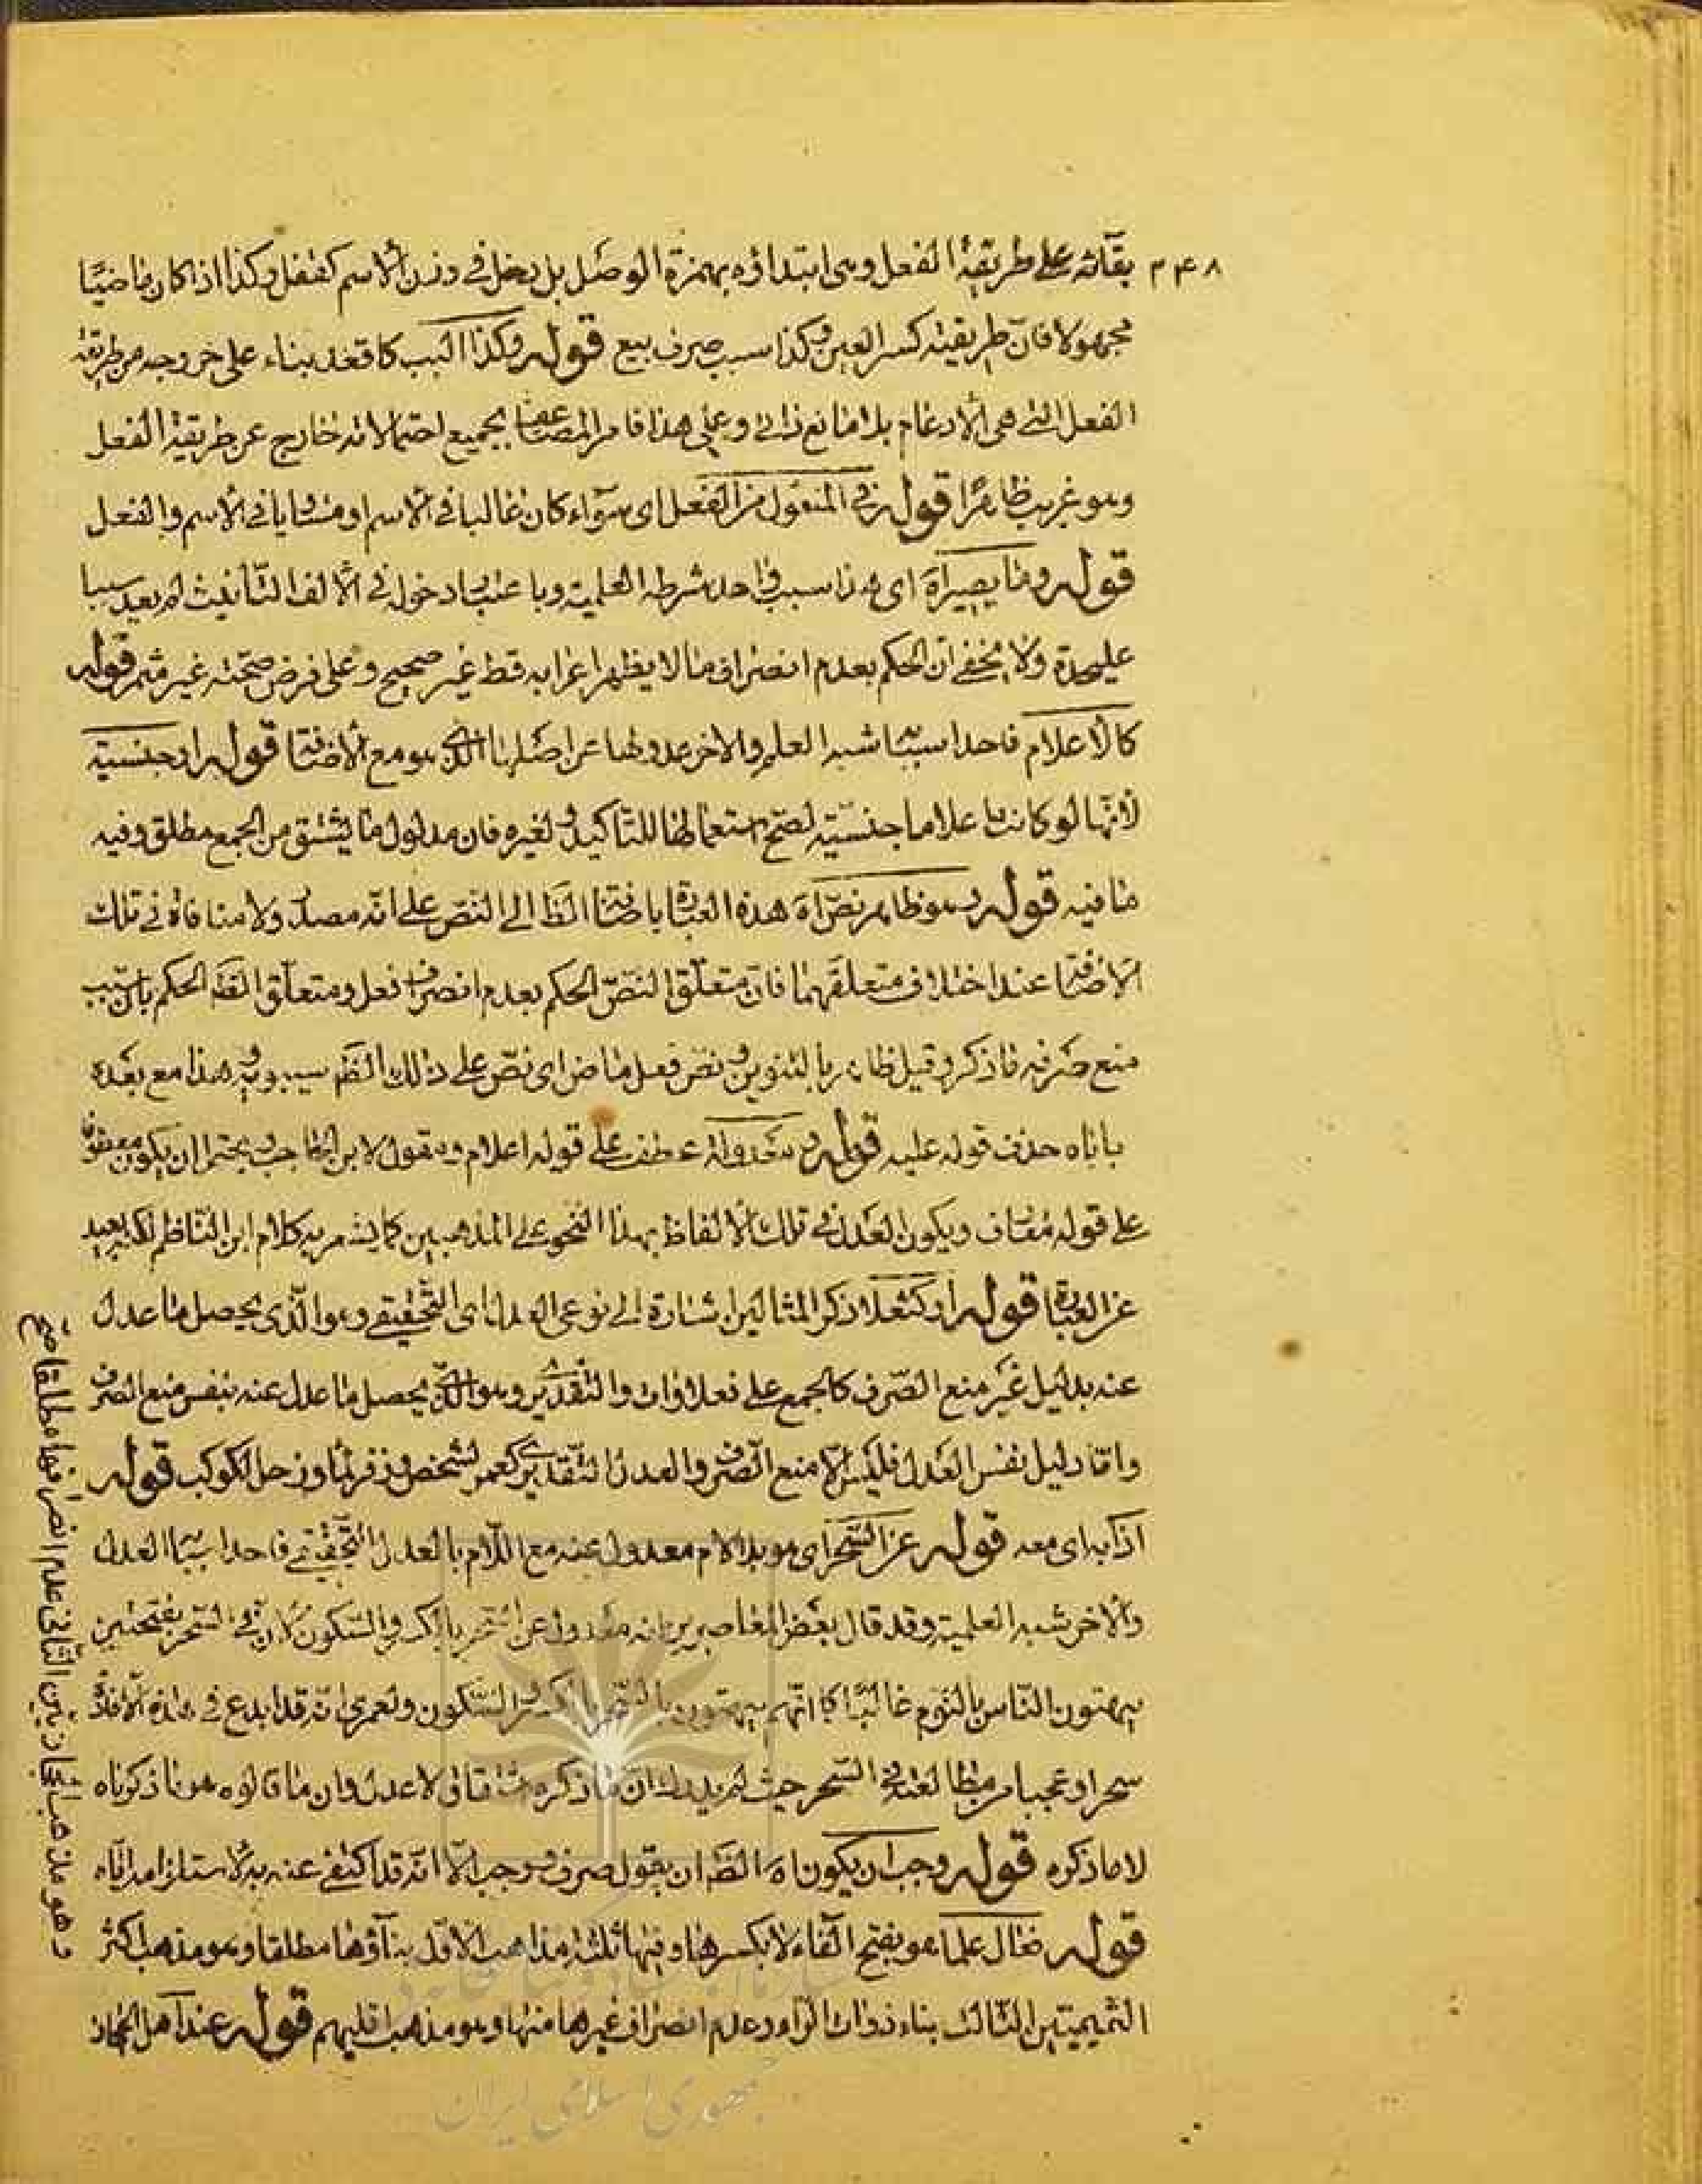 ٢٤٨ بقائه على طريقة الفعل وهى ابتداؤه بهمزة الوصل بل يدخل فى وزن الاسم كقفل وكذا اذا كان ماضيا
مجهولا فان طريقته كسر العين وكذا سبب صرف بيع قوله وكذا البب كاقعد بناء على خروجه من طريقة
الفعل التى هى الادغام بلا مانع وعلى هذا فامر المضاعف بجميع احتمالاته خارج عن طريقة الفعل
وهو غريب ظاهرا قوله فى المنقول من الفعل اى سواء كان غالبا فى الاسم او متساويا فى الاسم والفعل
قوله وما يصير اه اى هذا سبب واحد شرطه العلمية وباعتبار دخوله فى الالف التأنيث لم يعد سببا
عليحدة ولا يخفى ان الحكم بعدم انصراف ما لا يظهر اعرابه قط غير صحيح وعلى فرض صحته غير مثمر قوله
كالاعلام فاحد اسببها شبه العلم والاخر عدولها عن اصلها الذى هو مع الاضافة قوله او جنسية
لانها لو كانت اعلاما جنسية لصح استعمالها للتاكيد ولغيره فان مدلول ما يشتق من الجمع مطلق وفيه
ما فيه قوله وهو ظاهر نص اه هذه العبارة باضافة الظ الى النص على انه مصدر ولا منافاة فى تلك
الاضافة عند اختلاف متعلقهما فان متعلق النص الحكم بعدم انصراف فعل ومتعلق الظ الحكم بان سبب
منع صرفه ما ذكر وقيل ظاهر بالتنوين ونص فعل ماض اى نص على ذلك الظ سيبويه وهذا مع بعده
ياباه حذف قوله عليه قوله ومعدولة عطف على قوله اعلام ومقول لابن الحاجب يحتمل ان يكون معطوفا
على قوله مضاف ويكون العدل فى تلك الالفاظ بهذا النحو على المذهبين كما يشعر به كلام ابن الناظم لكنه بعيد
عن العبارة قوله او كثعلا ذكر المثالين اشارة الى نوعى العدل اى التحقيقى وهو الذى يحصل ما عدل
عنه بدليل غير منع الصرف كالجمع على فعلاوات والتقديرى وهو الذى يحصل ما عدل عنه بنفس منع الصرف
واما دليل نفس العدل فليس الا منع الصرف والعدل التقديرى كعمر لشخص وزفر وزحل لكوكب قوله
اذ به اى معه قوله عن السحر اى هو بلا لام معدول عنه مع اللام بالعدل التحقيقى فاحد اسببها العدل
والاخر شبه العلمية وقد قال بعض المعاصرين انه معدول عن السحر بالكسر والسكون لان فى السحر بفتحتين
يبهتون الناس بالنوم غالبا كما انهم يبهتون بالسحر بالكسر والسكون ولعمرى انه قد ابدع فى هذه الافادة
سحرا وعجبا من مطالعته فى السحر حيث لم يدر ان ما ذكره اشتقاق لا عدل وان ما قالوه هو ما ذكرناه
لا ما ذكره قوله وجب ان يكون اه الظ ان يقول صرف وجب الا انه قد اكتفى عنه به لاستلزامه اياه
قوله فعال علما هو بفتح الفاء لا بكسرها وفيها ثلثة مذاهب الاول بناؤها مطلقا وهو مذهب اكثر
التميميين الثالث بناء ذوات الراء وعدم انصراف غيرها منها وهو مذهب اقليهم قوله عند اهل الحجاز
وهو مذهب الحجازيين الثانى عدم انصرافها مطلقا صح
جمهوری اسلامی ایران